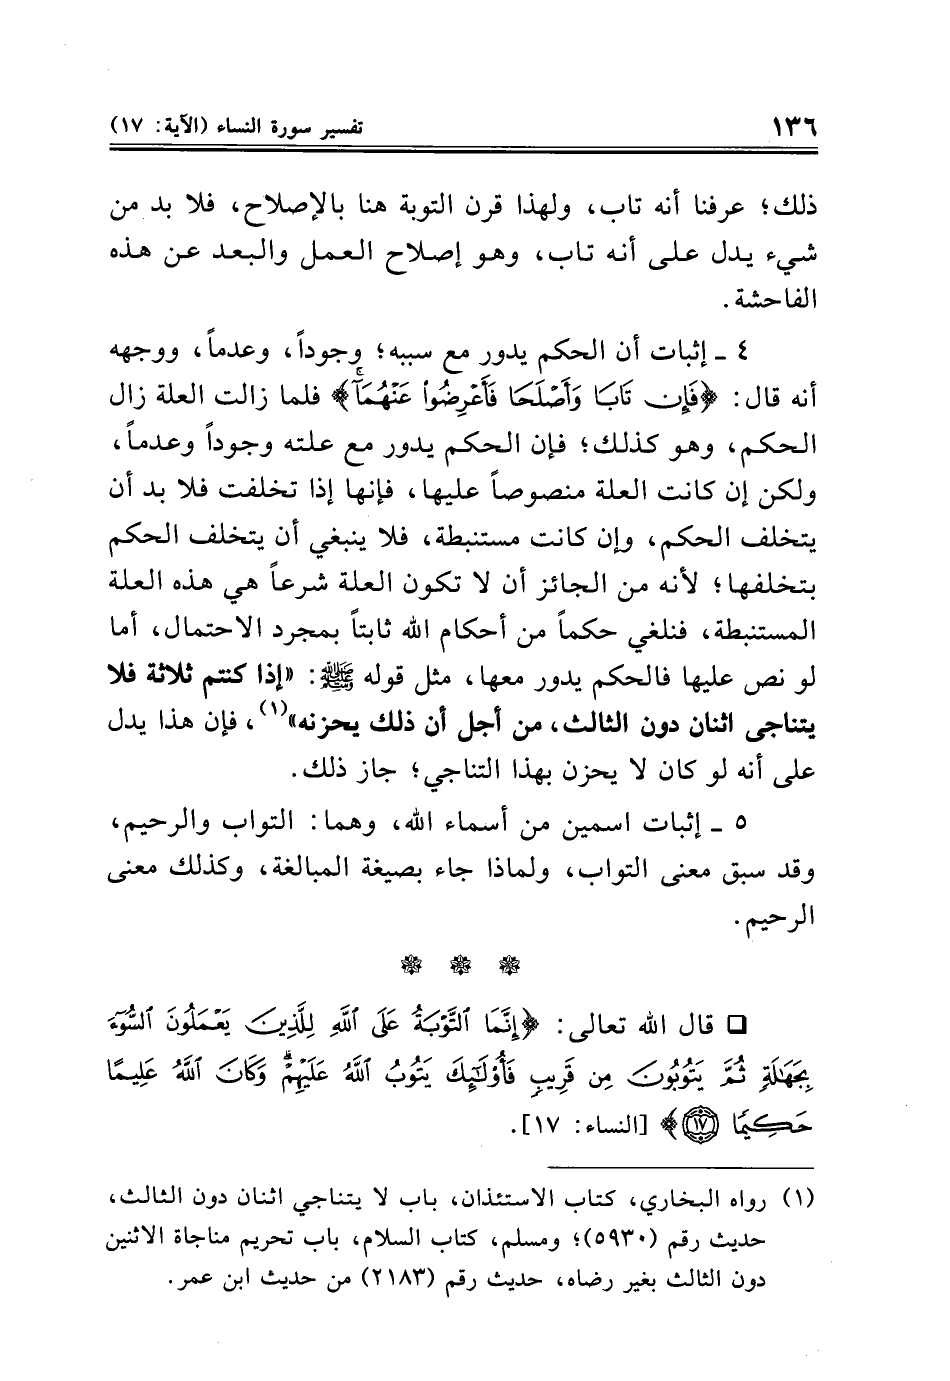 ١٣٦
تفسير سورة النساء (الآية: ١٧)
ذلك؛ عرفنا أنه تاب، ولهذا قرن التوبة هنا بالإصلاح، فلا بد من
شيء يدل على أنه تاب، وهو إصلاح العمل والبعد عن هذه
الفاحشة.
٤ ـ إثبات أن الحكم يدور مع سببه؛ وجوداً، وعدماً، ووجهه
أنه قال: ﴿فَإِن تَابَا وَأَصْلَحَا فَأَعْرِضُوا۟ عَنْهُمَآ﴾ فلما زالت العلة زال
الحكم، وهو كذلك؛ فإن الحكم يدور مع علته وجوداً وعدماً،
ولكن إن كانت العلة منصوصاً عليها، فإنها إذا تخلفت فلا بد أن
يتخلف الحكم، وإن كانت مستنبطة، فلا ينبغي أن يتخلف الحكم
بتخلفها؛ لأنه من الجائز أن لا تكون العلة شرعاً هي هذه العلة
المستنبطة، فنلغي حكماً من أحكام الله ثابتاً بمجرد الاحتمال، أما
لو نص عليها فالحكم يدور معها، مثل قوله ﷺ: «إذا كنتم ثلاثة فلا
يتناجى اثنان دون الثالث، من أجل أن ذلك يحزنه»(١)، فإن هذا يدل
على أنه لو كان لا يحزن بهذا التناجي؛ جاز ذلك.
٥ ـ إثبات اسمين من أسماء الله، وهما: التواب والرحيم،
وقد سبق معنى التواب، ولماذا جاء بصيغة المبالغة، وكذلك معنى
الرحيم.
❁ ❁ ❁
❑ قال الله تعالى: ﴿إِنَّمَا ٱلتَّوْبَةُ عَلَى ٱللَّهِ لِلَّذِينَ يَعْمَلُونَ ٱلسُّوٓءَ
بِجَهَٰلَةٍ ثُمَّ يَتُوبُونَ مِن قَرِيبٍ فَأُو۟لَٰٓئِكَ يَتُوبُ ٱللَّهُ عَلَيْهِمْ ۗ وَكَانَ ٱللَّهُ عَلِيمًا
حَكِيمًا ١٧﴾ [النساء: ١٧].
(١) رواه البخاري، كتاب الاستئذان، باب لا يتناجى اثنان دون الثالث،
حديث رقم (٥٩٣٠)؛ ومسلم، كتاب السلام، باب تحريم مناجاة الاثنين
دون الثالث بغير رضاه، حديث رقم (٢١٨٣) من حديث ابن عمر.